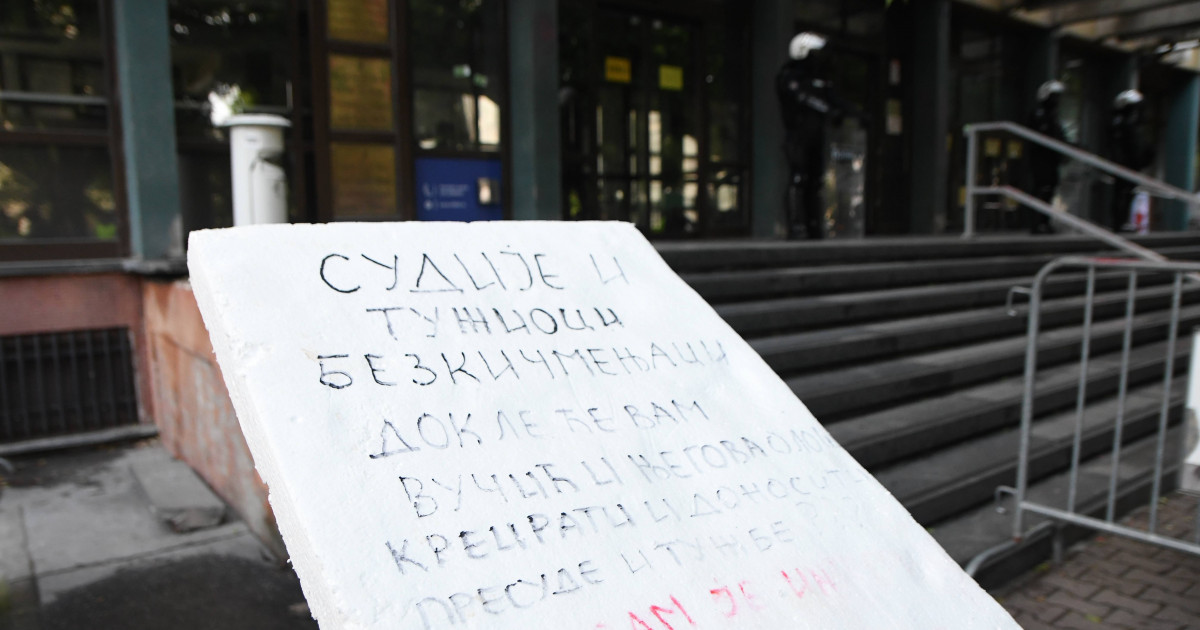 СУДИЈЕ И
ТУЖИОЦИ
БЕЗКИЧМЕЊАЦИ
ДОКЛЕ ЋЕ ВАМ
ВУЧИЋ И ЊЕГОВА
КРЕИРАТИ И ДОНОСИТИ
ПРЕСУДЕ И ТУЖБЕ
ЈЕ